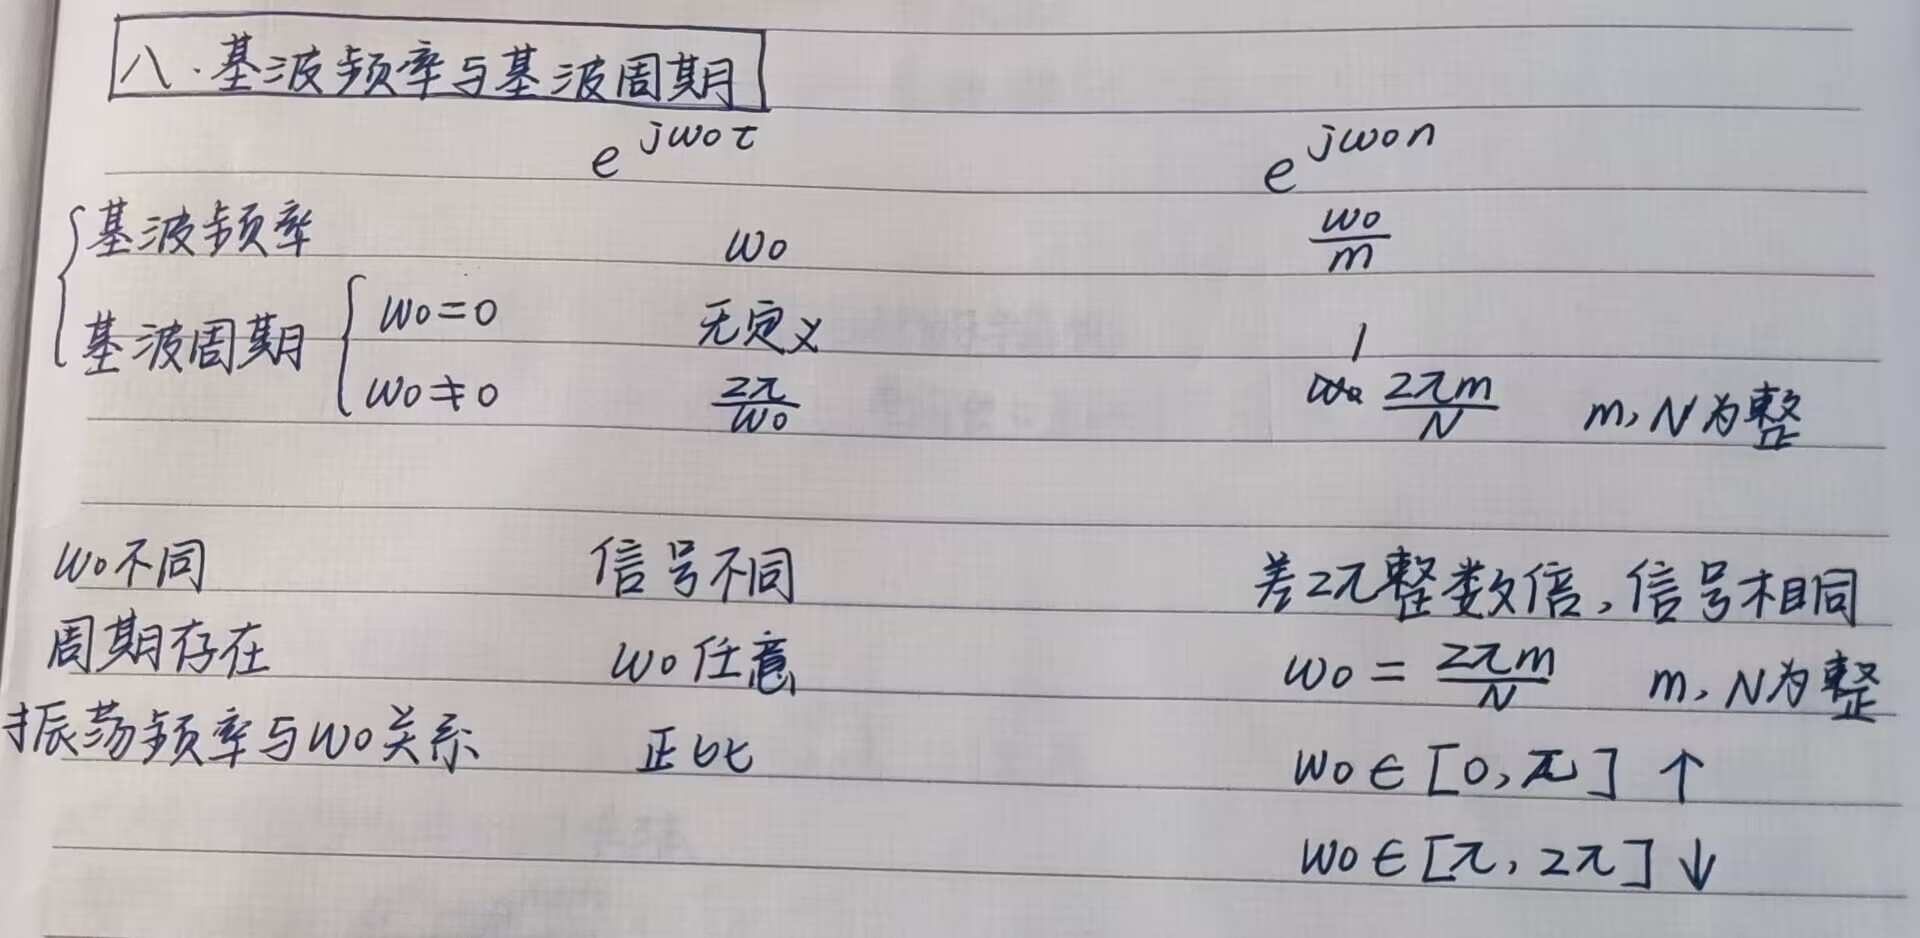 八.基波频率与基波周期
e^{jω0t} e^{jω0n}
基波频率 ω0 ω0/m
基波周期 ω0=0 无定义 1
ω0≠0 2π/ω0 2πm/N m,N为整
ω0不同 信号不同 差2π整数倍,信号相同
周期存在 ω0任意 ω0=2πm/N m,N为整
振荡频率与ω0关系 正比 ω0∈[0,π]↑
ω0∈[π,2π]↓